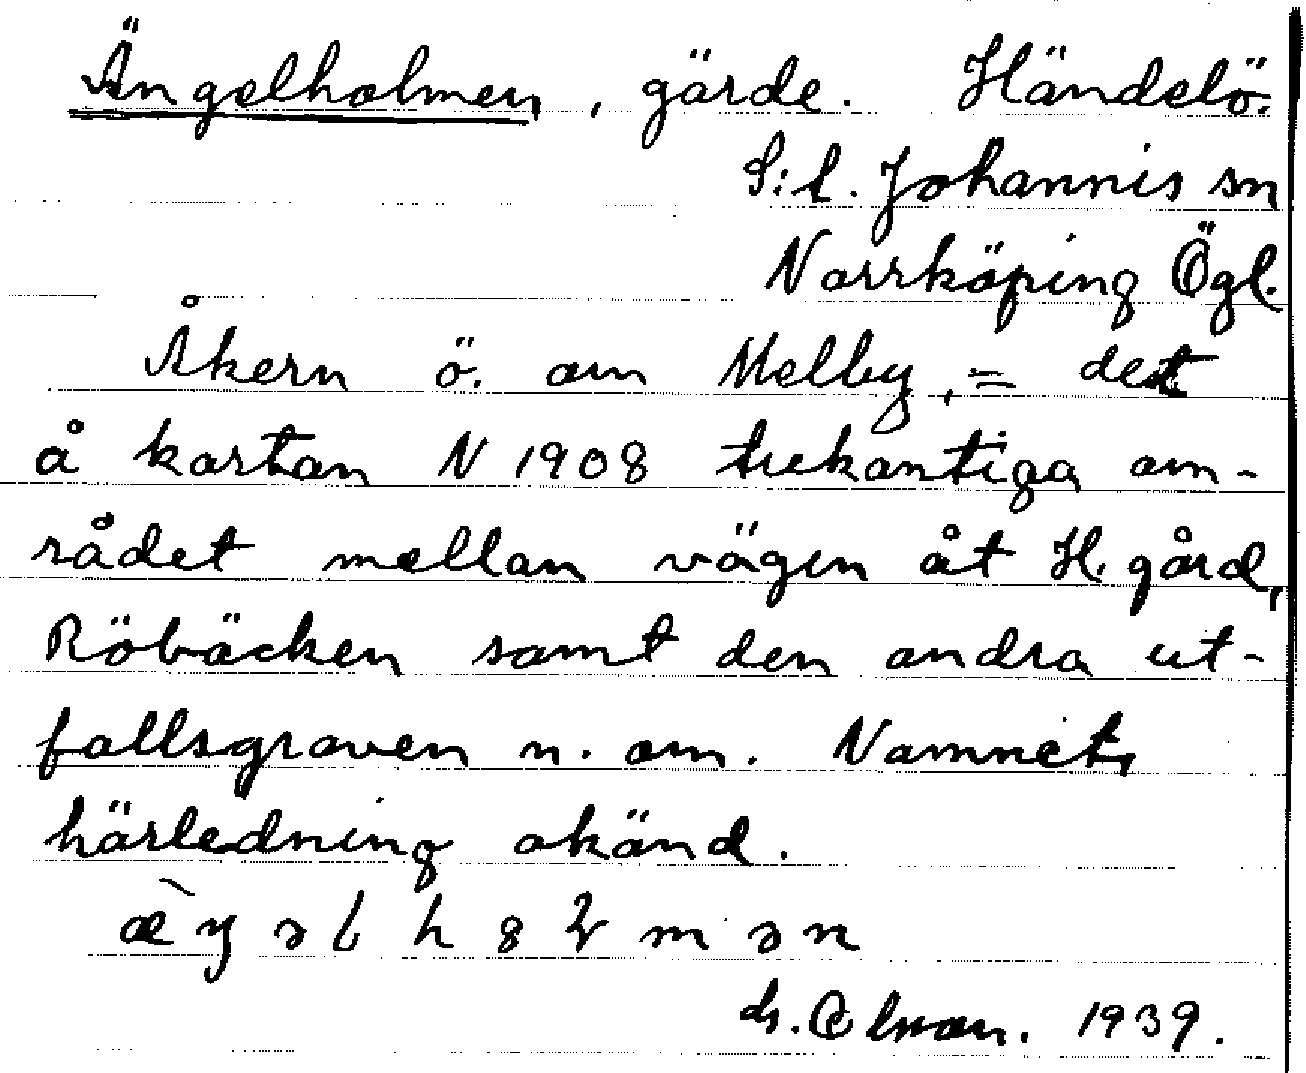 Ängelholmen, gärde. Händelö.
S:t. Johannis sn
Norrköping Ögl.
Åkern ö. om Melby, = det
å kartan N 1908 trekantiga om-
rådet mellan vägen åt H. gård,
Röbäcken samt den andra ut-
fallsgraven n. om. Namnets
härledning okänd.
1939.